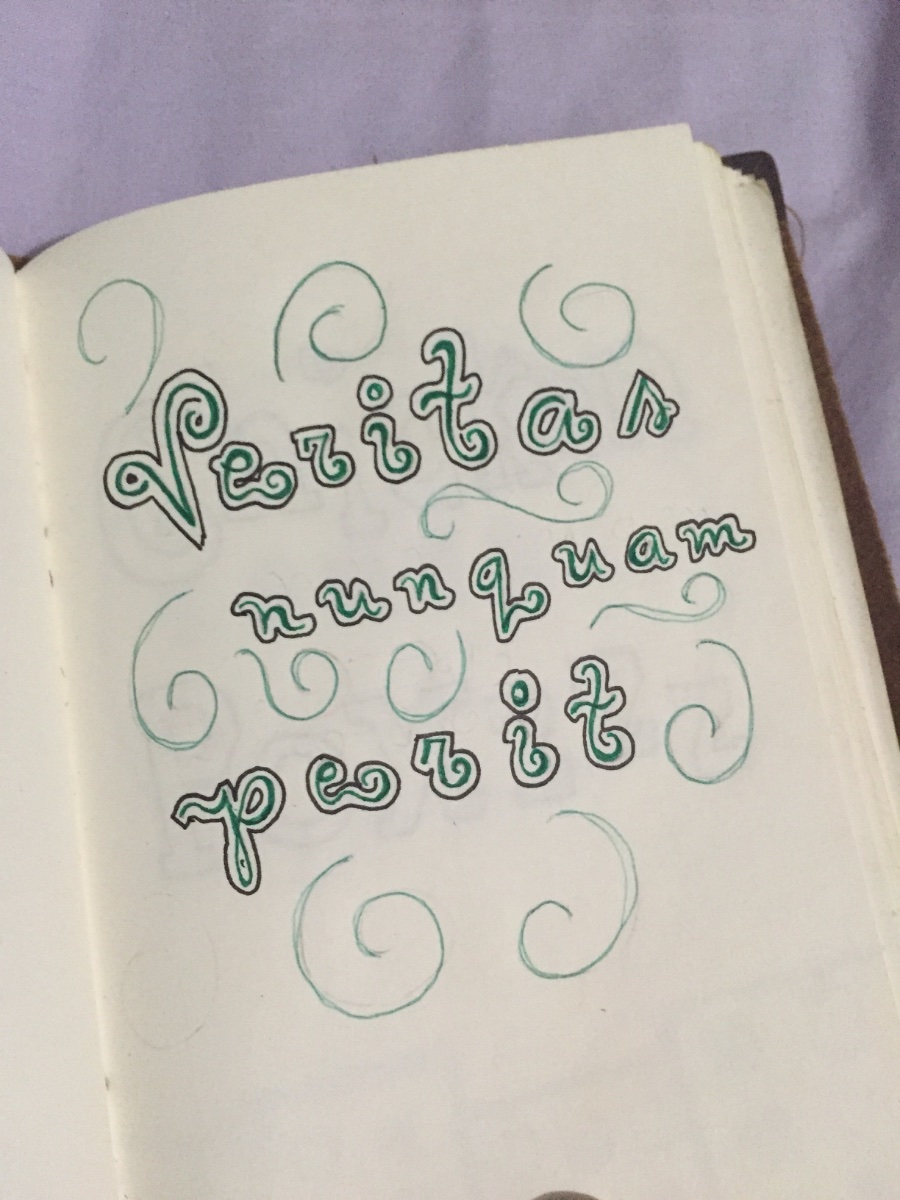 Veritas
nunquam
perit